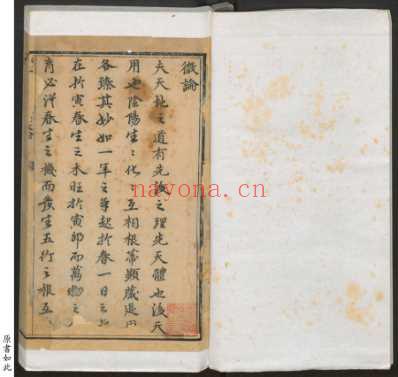 微論
夫天地之道有先後之理先天體也後天
用也陰陽生生之化互相根蒂顯藏退
各臻其妙如一年之事起於春一日之
在於寅春生之木旺於寅卯而萬物之
育必得春生之機而發生五行之根五
nayona.cn
原書如此